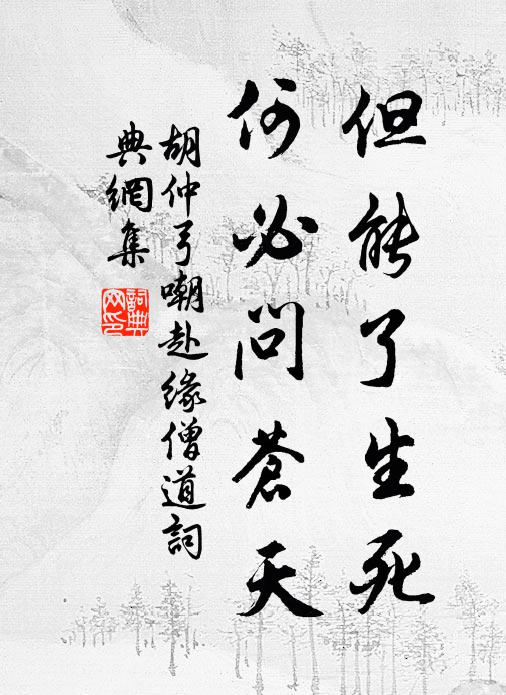 但能了生死
何必問蒼天
胡仲弓嘲赴緣僧道詞
典網集
詞典
网印